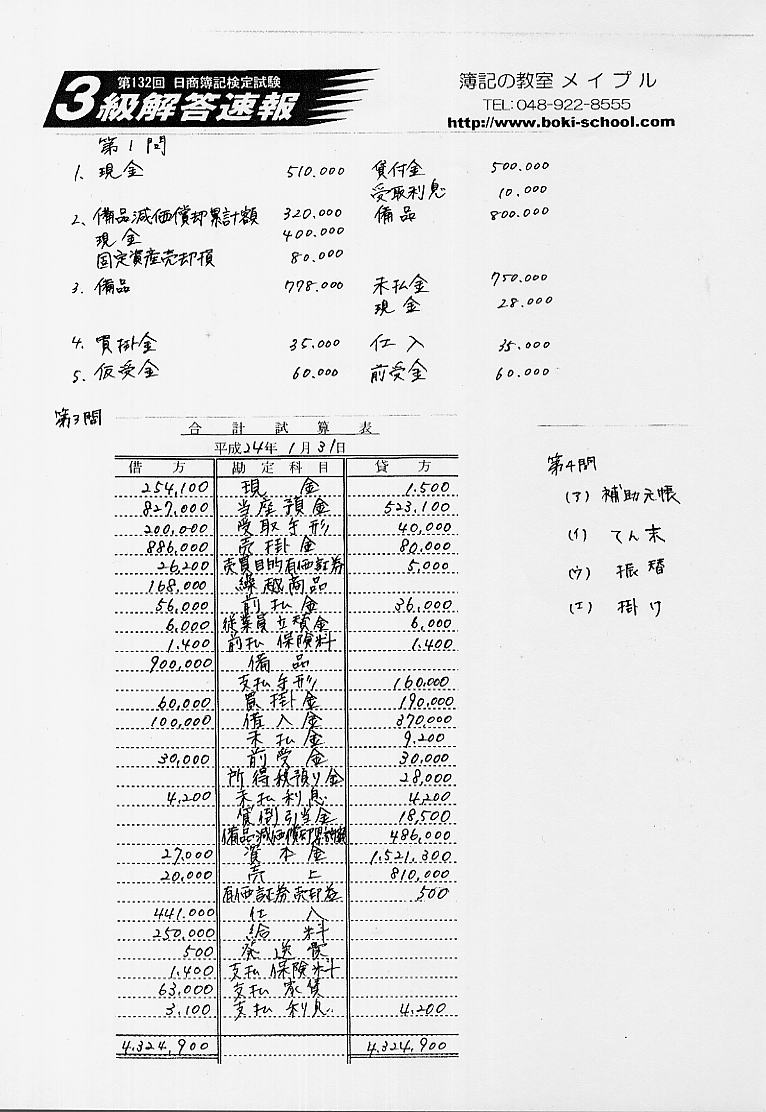 第132回 日商簿記検定試験
3級解答速報
簿記の教室 メイプル
TEL:048-922-8555
http://www.boki-school.com
第1問
1. 現金 510.000 貸付金 500.000
受取利息 10.000
2. 備品減価償却累計額 320.000 備品 800.000
現金 400.000
固定資産売却損 80.000
3. 備品 778.000 未払金 750.000
現金 28.000
4. 買掛金 35.000 仕入 35.000
5. 仮受金 60.000 前受金 60.000
第3問
合計試算表
平成24年1月31日
借方 勘定科目 貸方
254,100 現金 1.500
827,000 当座預金 523,100
200,000 受取手形 40,000
886,000 売掛金 80,000
26,200 売買目的有価証券 5,000
168,000 繰越商品
56,000 前払金 36,000
6,000 従業員立替金 6,000
1.400 前払保険料 1.400
900,000 備品
支払手形 160,000
60,000 買掛金 190,000
100,000 借入金 370,000
未払金 9.200
30,000 前受金 30,000
所得税預り金 28,000
4,200 未払利息 4,200
貸倒引当金 18,500
備品減価償却累計額 486,000
27,000 資本金 1,521,300
20,000 売上 810,000
有価証券売却益 500
441,000 仕入
250,000 給料
500 発送費
1.400 支払保険料
63,000 支払家賃
3,100 支払利息 4.200
4,324,900 4,324,900
第4問
(ア) 補助元帳
(イ) てん末
(ウ) 振替
(エ) 掛け